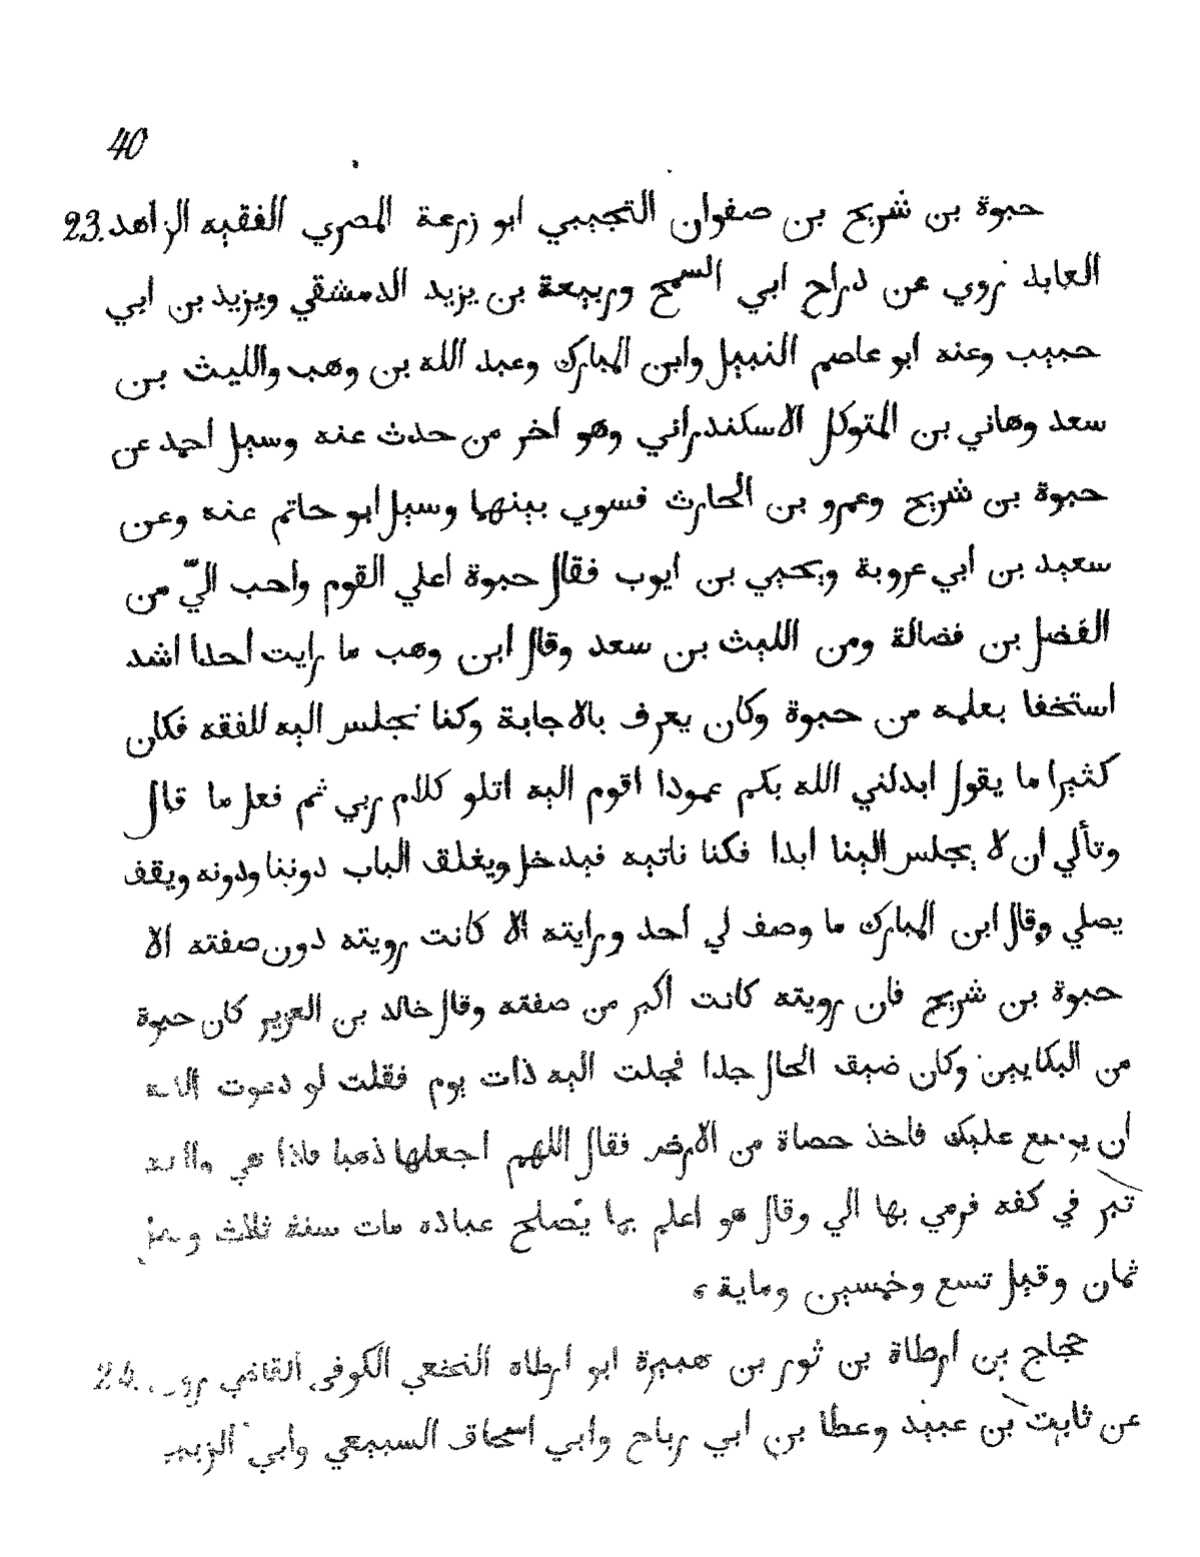 40
23. حيوة بن شريح بن صفوان التجيبي ابو زرعة المصري الفقيه الزاهد
العابد روي عن دراج ابي السمح وربيعة بن يزيد الدمشقي ويزيد بن ابي
حبيب وعنه ابو عاصم النبيل وابن المبارك وعبد الله بن وهب والليث بن
سعد وهاني بن المتوكل الاسكندراني وهو اخر من حدث عنه وسيل احمد عن
حيوة بن شريح وعمرو بن الحارث فسوي بينهما وسيل ابو حاتم عنه وعن
سعيد بن ابي عروبة ويحيي بن ايوب فقال حيوة اعلي القوم واحب اليّ من
الفضل بن فضالة ومن الليث بن سعد وقال ابن وهب ما رايت احدا اشد
استخفا بعلمه من حيوة وكان يعرف بالاجابة وكنا نجلس اليه للفقه فكان
كثيرا ما يقول ابدلني الله بكم عمودا اقوم اليه اتلو كلام ربي ثم فعل ما قال
وتألي ان لا يجلس الينا ابدا فكنا ناتيه فيدخل ويغلق الباب دوننا ودونه ويقف
يصلي وقال ابن المبارك ما وصف لي أحد ورايته الا كانت رويته دون صفته الا
حيوة بن شريح فان رويته كانت أكبر من صفته وقال خالد بن العزير كان حيوة
من البكايين وكان ضيق الحال جدا فجلت اليه ذات يوم فقلت لو دعوت الله
ان يوسع عليك فاخذ حصاة من الارض فقال اللهم اجعلها ذهبا فاذا هي والله
تبر في كفه فرمي بها الي وقال هو اعلم بما يصلح عباده مات سنة ثلاث وقيل
ثمان وقيل تسع وخمسين وماية
24. حجاج بن ارطاة بن ثور بن هبيرة ابو ارطاه النخعي الكوفي القاضي روي
عن ثابت بن عبيد وعطا بن ابي رباح وابي اسحاق السبيعي وابي الزبير